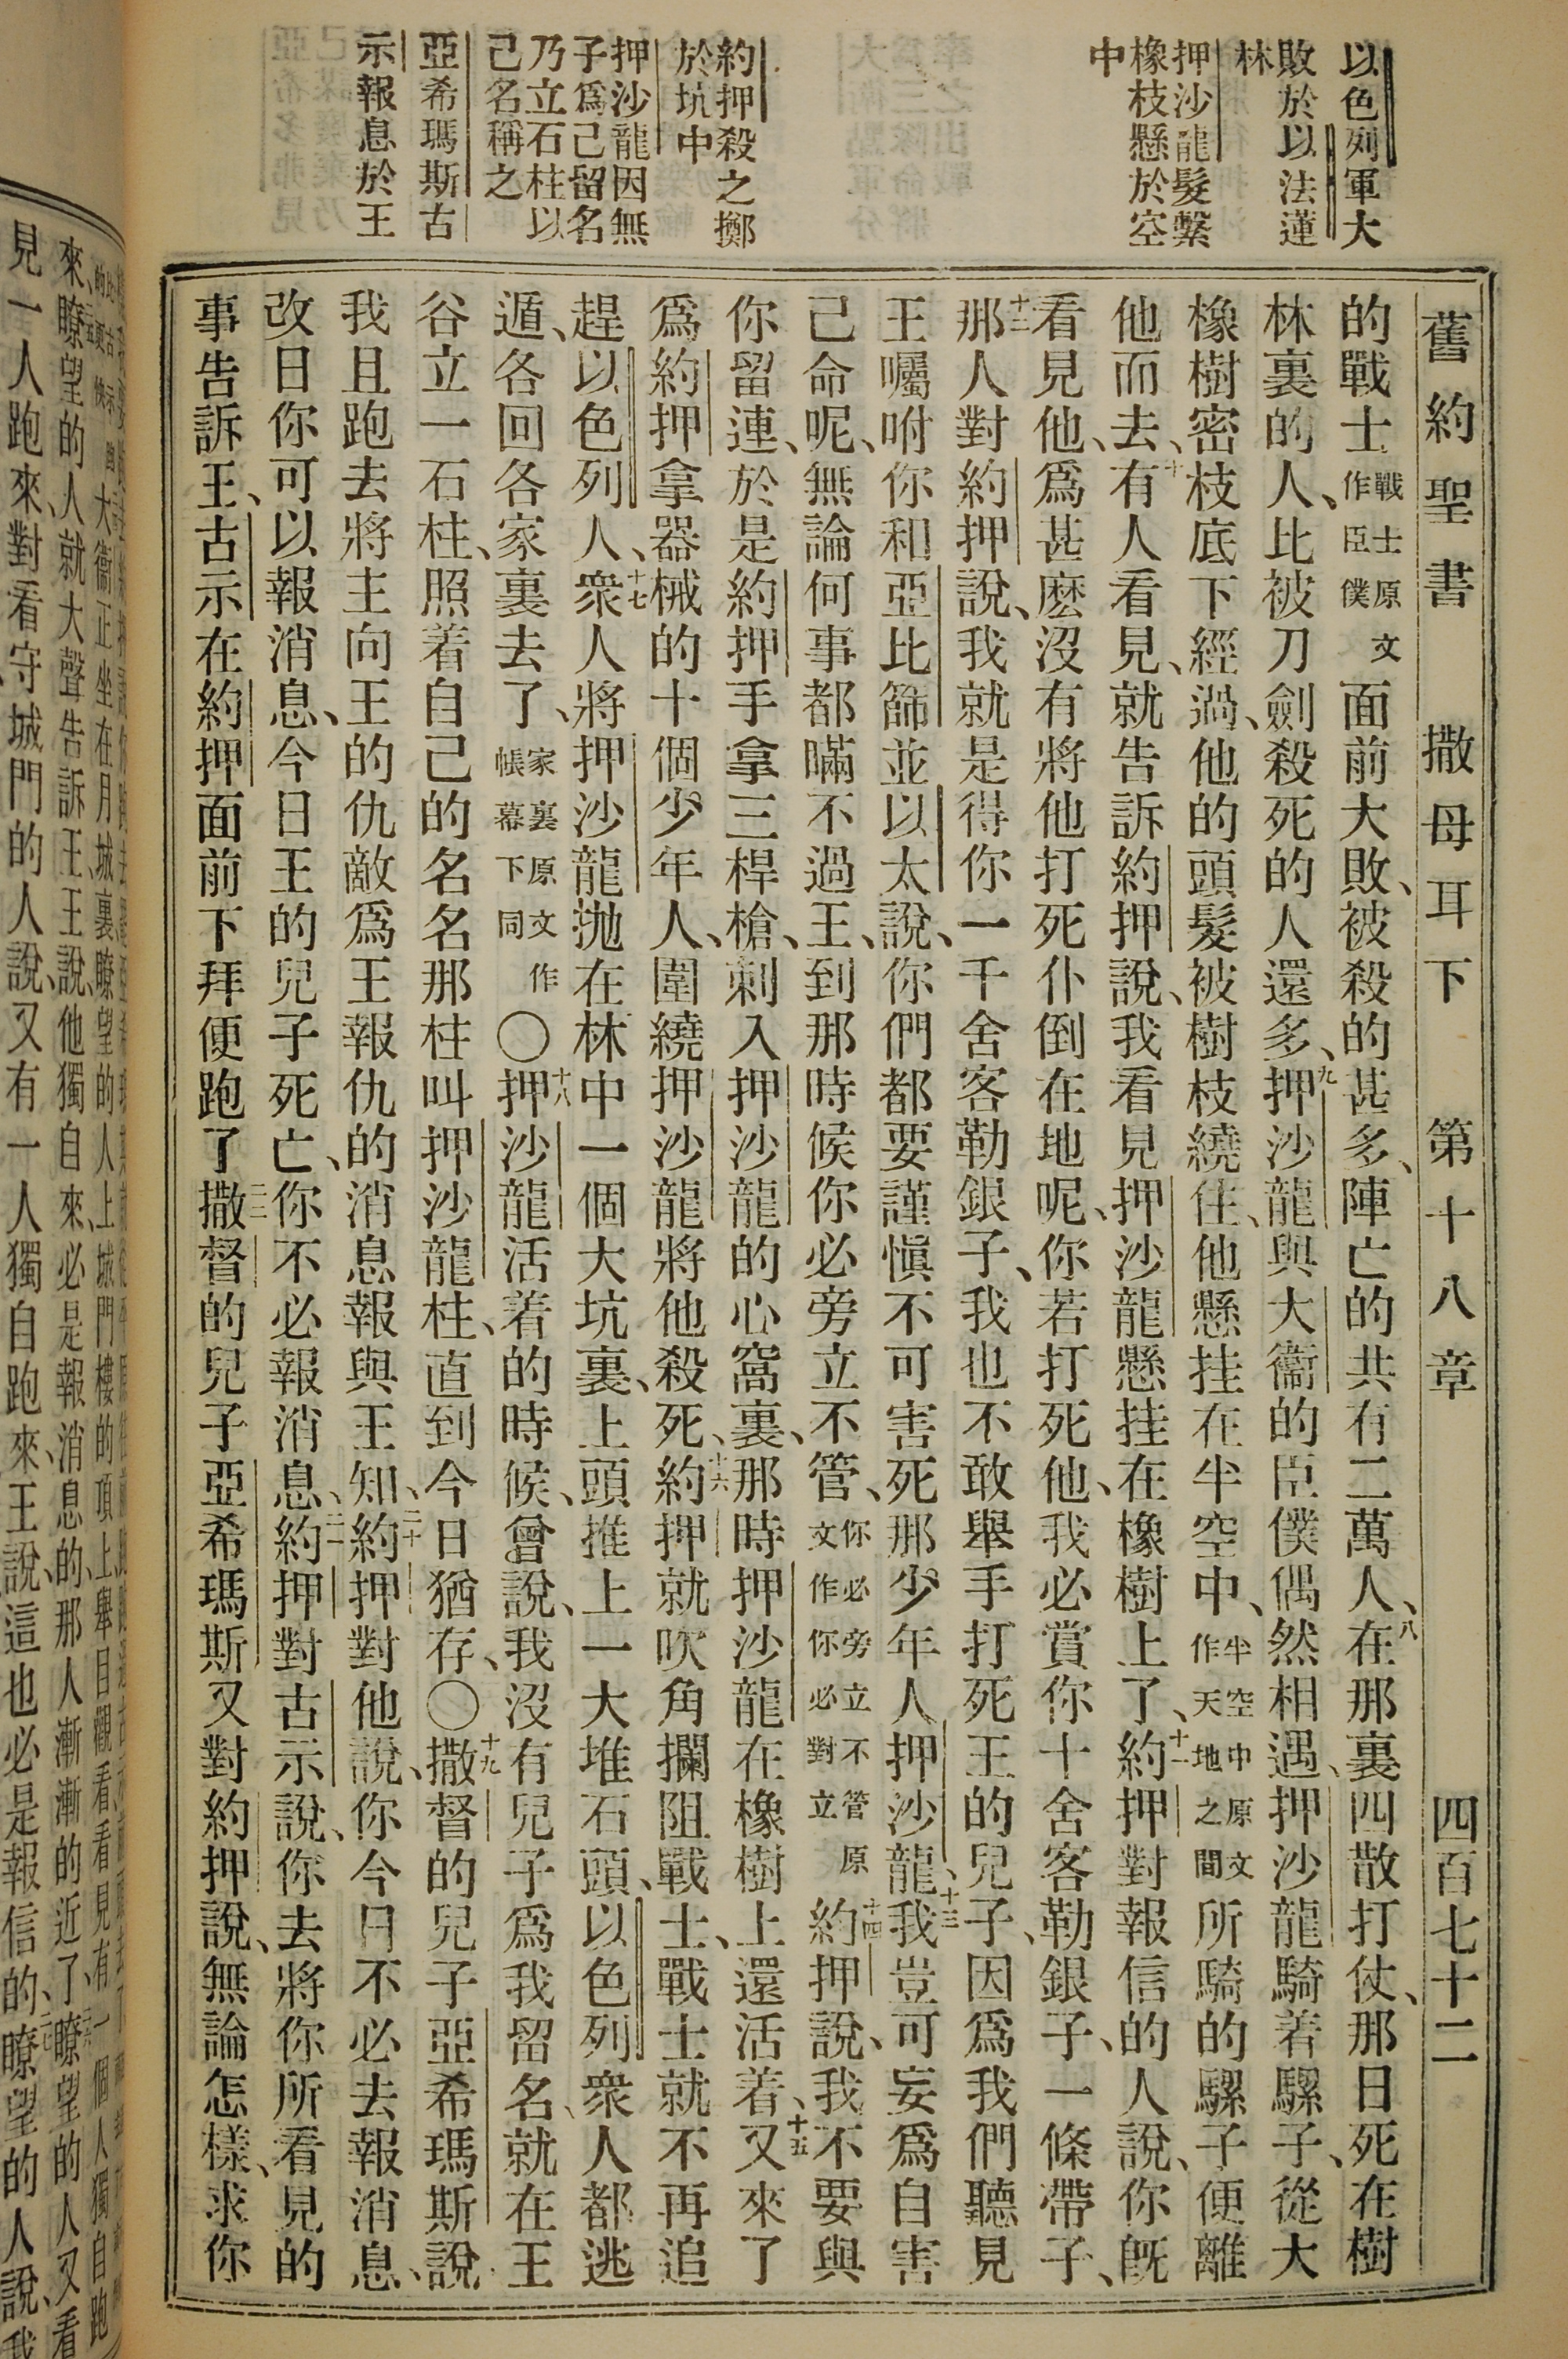 以色列軍大
敗於以法蓮
林
押沙龍髮繫
橡枝懸於空
中
約押殺之擲
於坑中
押沙龍因無
子爲己留名
乃立石柱以
己名稱之
亞希瑪斯古
示報息於王
舊約聖書 撒母耳下 第十八章 四百七十二
的戰士戰士原文作臣僕面前大敗、被殺的甚多、陣亡的共有二萬人、八在那裏四散打仗、那日死在樹
林裏的人、比被刀劍殺死的人還多、九押沙龍與大衞的臣僕偶然相遇、押沙龍騎着騾子、從大
橡樹密枝底下經過、他的頭髮被樹枝繞住、他懸挂在半空中、半空中原文作天地之間所騎的騾子便離
他而去、十有人看見、就告訴約押說、我看見押沙龍懸挂在橡樹上了、十一約押對報信的人說、你旣
看見他、爲甚麽沒有將他打死仆倒在地呢、你若打死他、我必賞你十舍客勒銀子、一條帶子、
十二那人對約押說、我就是得你一千舍客勒銀子、我也不敢舉手打死王的兒子、因爲我們聽見
王囑咐你和亞比篩並以太說、你們都要謹愼不可害死那少年人押沙龍、十三我豈可妄爲自害
己命呢、無論何事都瞞不過王、到那時候你必旁立不管、你必旁立不管原文作你必對立十四約押說、我不要與
你留連、於是約押手拿三桿槍、刺入押沙龍的心窩裏、那時押沙龍在橡樹上還活着、十五又來了
爲約押拿器械的十個少年人、圍繞押沙龍將他殺死、十六約押就吹角攔阻戰士、戰士就不再追
趕以色列人、十七衆人將押沙龍抛在林中一個大坑裏、上頭推上一大堆石頭、以色列衆人都逃
遁、各回各家裏去了、家裏原文作帳幕下同〇十八押沙龍活着的時候、曾說、我沒有兒子爲我留名、就在王
谷立一石柱、照着自己的名名那柱叫押沙龍柱、直到今日猶存、〇十九撒督的兒子亞希瑪斯說、
我且跑去將主向王的仇敵爲王報仇的消息報與王知、二十約押對他說、你今日不必去報消息、
改日你可以報消息、今日王的兒子死亡、你不必報消息、二一約押對古示說、你去將你所看見的
事告訴王、古示在約押面前下拜便跑了、二二撒督的兒子亞希瑪斯又對約押說、無論怎樣、求你
大衞正坐在月城裏、瞭望的人上城門樓的頂上舉目觀看、看見有一個人獨自跑
來、瞭望的人就大聲告訴王、王說、他獨自來、必是報消息的、那人漸漸的近了、瞭望的人又看
見一人跑來、對看守城門的人說、又有一人獨自跑來、王說、這也必是報信的、瞭望的人說、我